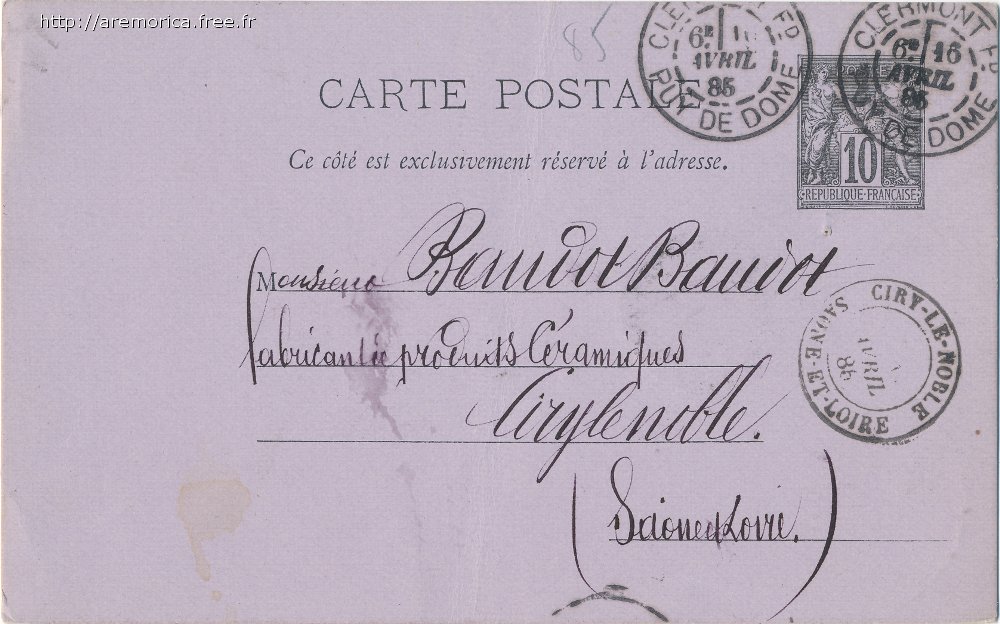 http://aremorica.free.fr
85
CLERMONT FD
6E 16
AVRIL
85
PUY DE DOME
CLERMONT FD
6E 16
AVRIL
85
DE DOME
CARTE POSTALE
Ce côté est exclusivement réservé à l'adresse.
10
REPUBLIQUE FRANÇAISE
Monsieur Baudot Baudot
fabricant de produits Céramiques
Cirylenoble.
(Saone et Loire.)
CIRY-LE-NOBLE
AVRIL
85
SAONE-ET-LOIRE